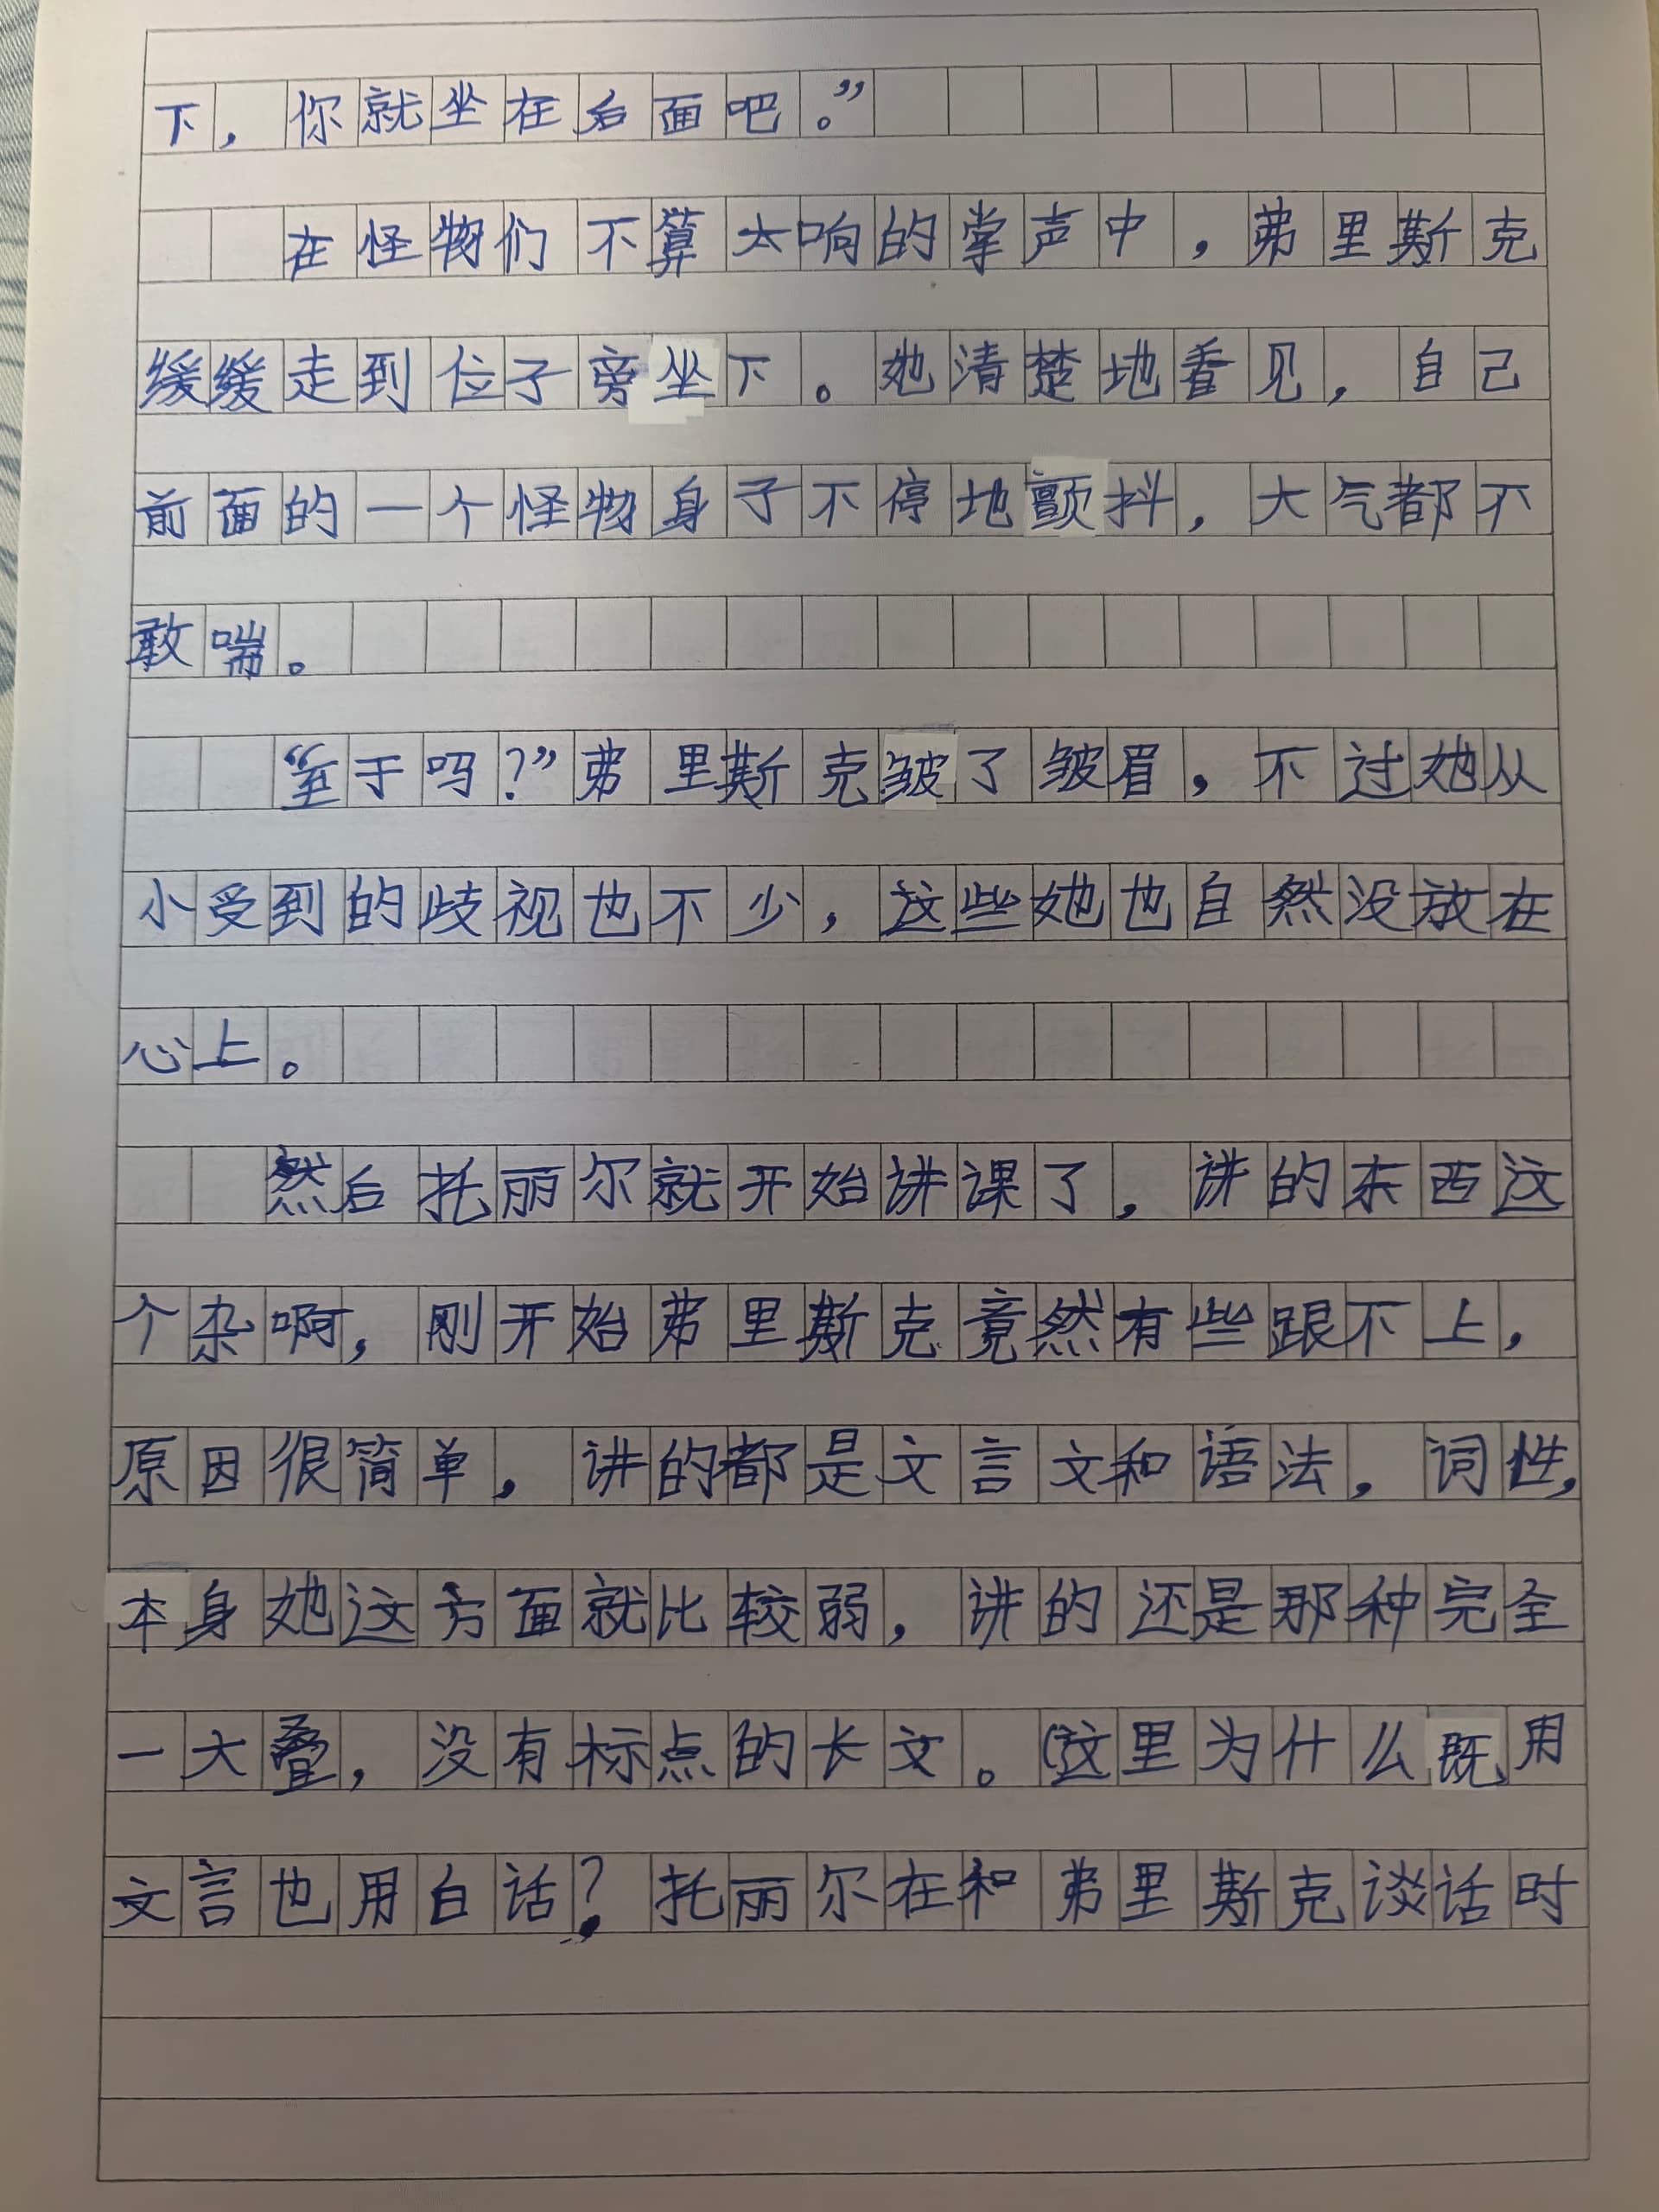 下，你就坐在后面吧。”
在怪物们不算太响的掌声中，弗里斯克
缓缓走到位子旁坐下。她清楚地看见，自己
前面的一个怪物身子不停地颤抖，大气都不
敢喘。
“至于吗？”弗里斯克皱了皱眉，不过她从
小受到的歧视也不少，这些她也自然没放在
心上。
然后托丽尔就开始讲课了，讲的东西这
个杂啊，刚开始弗里斯克竟然有些跟不上，
原因很简单，讲的都是文言文和语法，词性，
本身她这方面就比较弱，讲的还是那种完全
一大叠，没有标点的长文。（这里为什么既用
文言也用白话？托丽尔在和弗里斯克谈话时